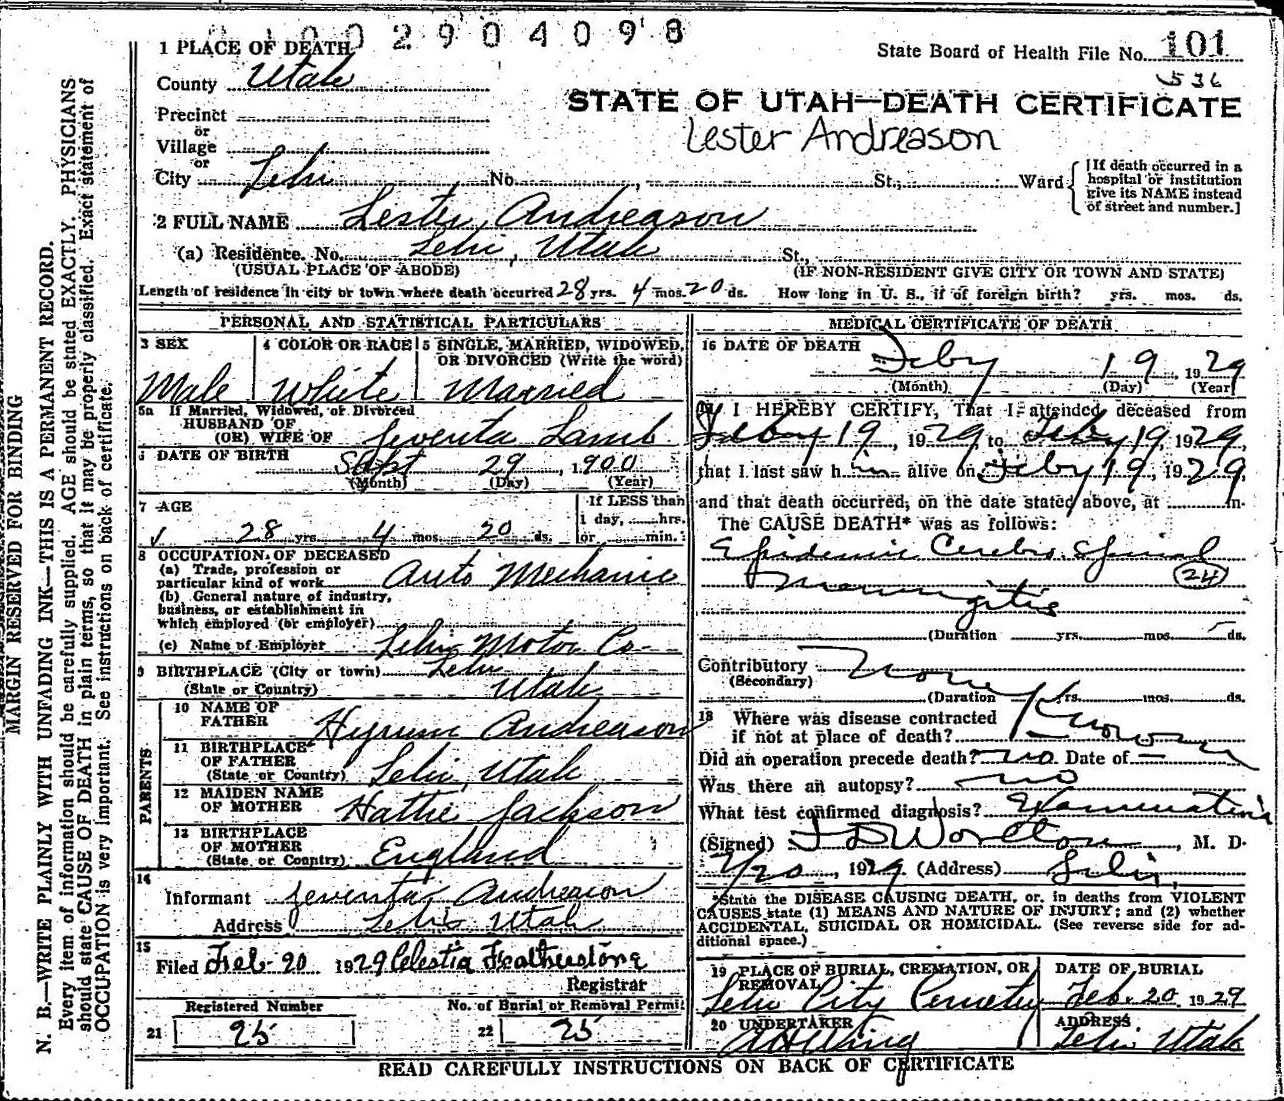 002904098
1 PLACE OF DEATH
State Board of Health File No. 101
County Utah
536
STATE OF UTAH—DEATH CERTIFICATE
Precinct
or
Village
Lester Andreason
or
City Lehi No. , St., Ward
[If death occurred in a
hospital or institution
give its NAME instead
of street and number.]
2 FULL NAME Lester Andreason
(a) Residence. No. Lehi, Utah St.,
(USUAL PLACE OF ABODE) (IF NON-RESIDENT GIVE CITY OR TOWN AND STATE)
Length of residence in city or town where death occurred 28 yrs. 4 mos. 20 ds. How long in U. S., if of foreign birth? yrs. mos. ds.
PERSONAL AND STATISTICAL PARTICULARS
3 SEX
Male
4 COLOR OR RACE
White
5 SINGLE, MARRIED, WIDOWED,
OR DIVORCED (Write the word)
Married
5a If Married, Widowed, or Divorced
HUSBAND OF
(OR) WIFE OF Jeventa Lamb
DATE OF BIRTH Sept 29, 1900
(Month) (Day) (Year)
7 AGE
28 yrs. 4 mos. 20 ds.
If LESS than
1 day, hrs.
or min.
8 OCCUPATION OF DECEASED
(a) Trade, profession or
particular kind of work Auto Mechanic
(b) General nature of industry,
business, or establishment in
which employed (or employer)
(c) Name of Employer Lehi Motor Co
9 BIRTHPLACE (City or town) Lehi
(State or Country) Utah
PARENTS
10 NAME OF
FATHER Hyrum Andreason
11 BIRTHPLACE
OF FATHER
(State or Country) Lehi, Utah
12 MAIDEN NAME
OF MOTHER Hattie Jackson
13 BIRTHPLACE
OF MOTHER
(State or Country) England
14
Informant Jeventa Andreason
Address Lehi Utah
15
Filed Feb-20 1929 Celestia Featherstone
Registrar
Registered Number
21 25
No. of Burial or Removal Permit
22 25
MEDICAL CERTIFICATE OF DEATH
16 DATE OF DEATH
Feby 19 1929
(Month) (Day) (Year)
17 I HEREBY CERTIFY, That I attended deceased from
Feby 19, 1929 to Feby 19 1929,
that I last saw h im alive on Feby 19, 1929,
and that death occurred, on the date stated above, at m.
The CAUSE DEATH* was as follows:
Epidemic Cerebro Spinal
(24)
Meningitis
(Duration yrs. mos. 5 ds.
Contributory None
(Secondary)
(Duration yrs. mos. ds.
18 Where was disease contracted
if not at place of death? Known
Did an operation precede death? no Date of —
Was there an autopsy? no
What test confirmed diagnosis? Examination
(Signed) Worlton, M. D.
2/20, 1929. (Address) Lehi,
*State the DISEASE CAUSING DEATH, or, in deaths from VIOLENT
CAUSES state (1) MEANS AND NATURE OF INJURY; and (2) whether
ACCIDENTAL, SUICIDAL OR HOMICIDAL. (See reverse side for ad-
ditional space.)
19 PLACE OF BURIAL, CREMATION, OR
REMOVAL
Lehi City Cemetery
DATE OF BURIAL
Feb. 20 1929
20 UNDERTAKER
A H Wing
ADDRESS
Lehi Utah
READ CAREFULLY INSTRUCTIONS ON BACK OF CERTIFICATE
MARGIN RESERVED FOR BINDING
N. B.—WRITE PLAINLY WITH UNFADING INK—THIS IS A PERMANENT RECORD.
Every item of information should be carefully supplied. AGE should be stated EXACTLY. PHYSICIANS
should state CAUSE OF DEATH in plain terms, so that it may be properly classified. Exact statement of
OCCUPATION is very important. See instructions on back of certificate.